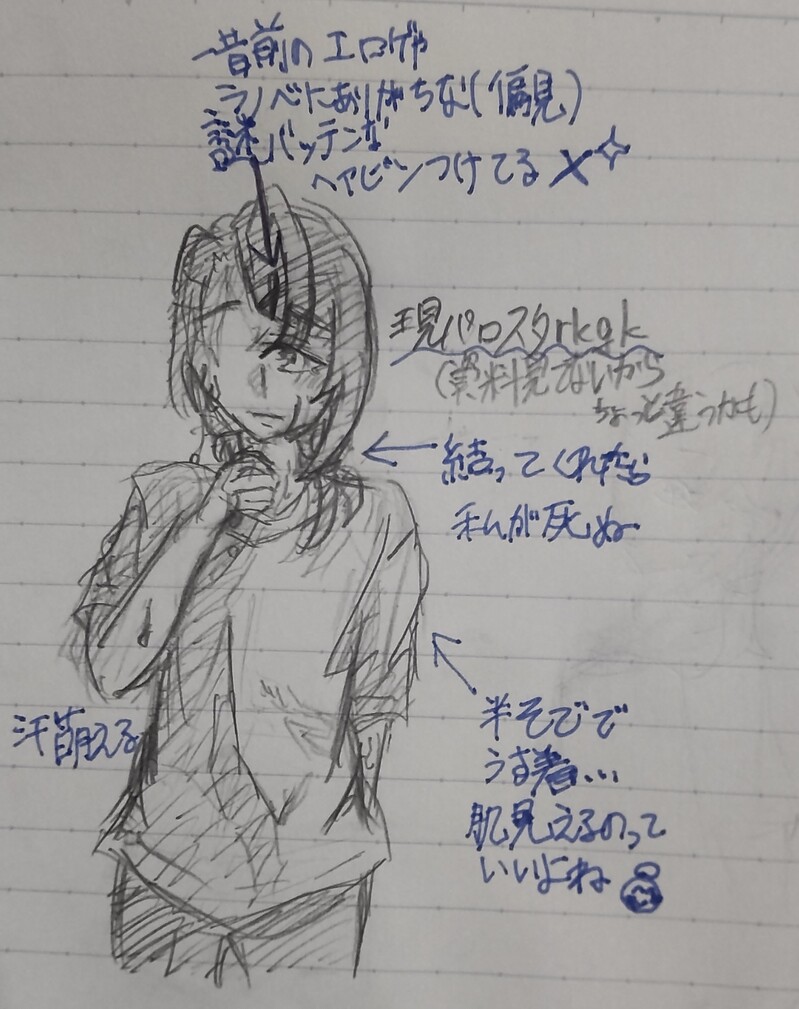 一昔前のエロゲや
ラノベにありがちな(偏見)
謎バッテンな
ヘアピンつけてる X
現パロスタrkgk
(資料見てないから
ちょっと違うかも)
結ってくれたら
私が死ぬ
半そでで
うす着...
肌見えるのって
いいよね
汗萌える